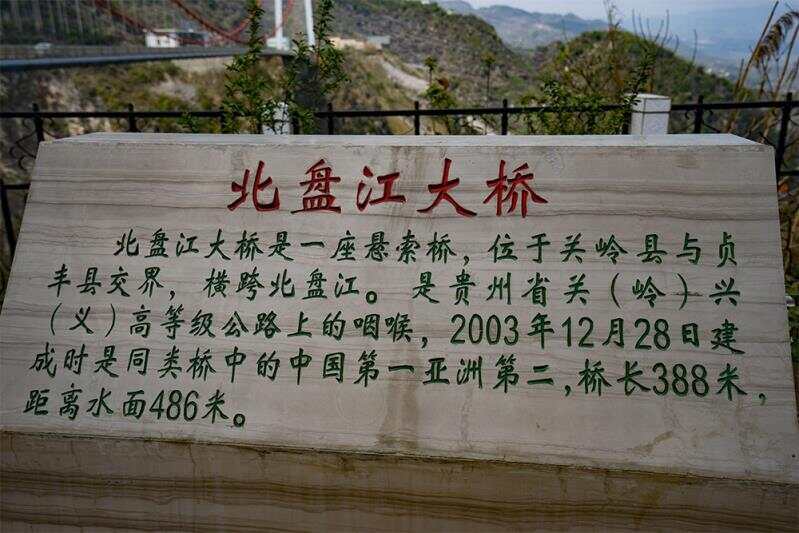 北盘江大桥
北盘江大桥是一座悬索桥，位于关岭县与贞
丰县交界，横跨北盘江。是贵州省关（岭）兴
（义）高等级公路上的咽喉，2003年12月28日建
成时是同类桥中的中国第一亚洲第二,桥长388米，
距离水面486米。